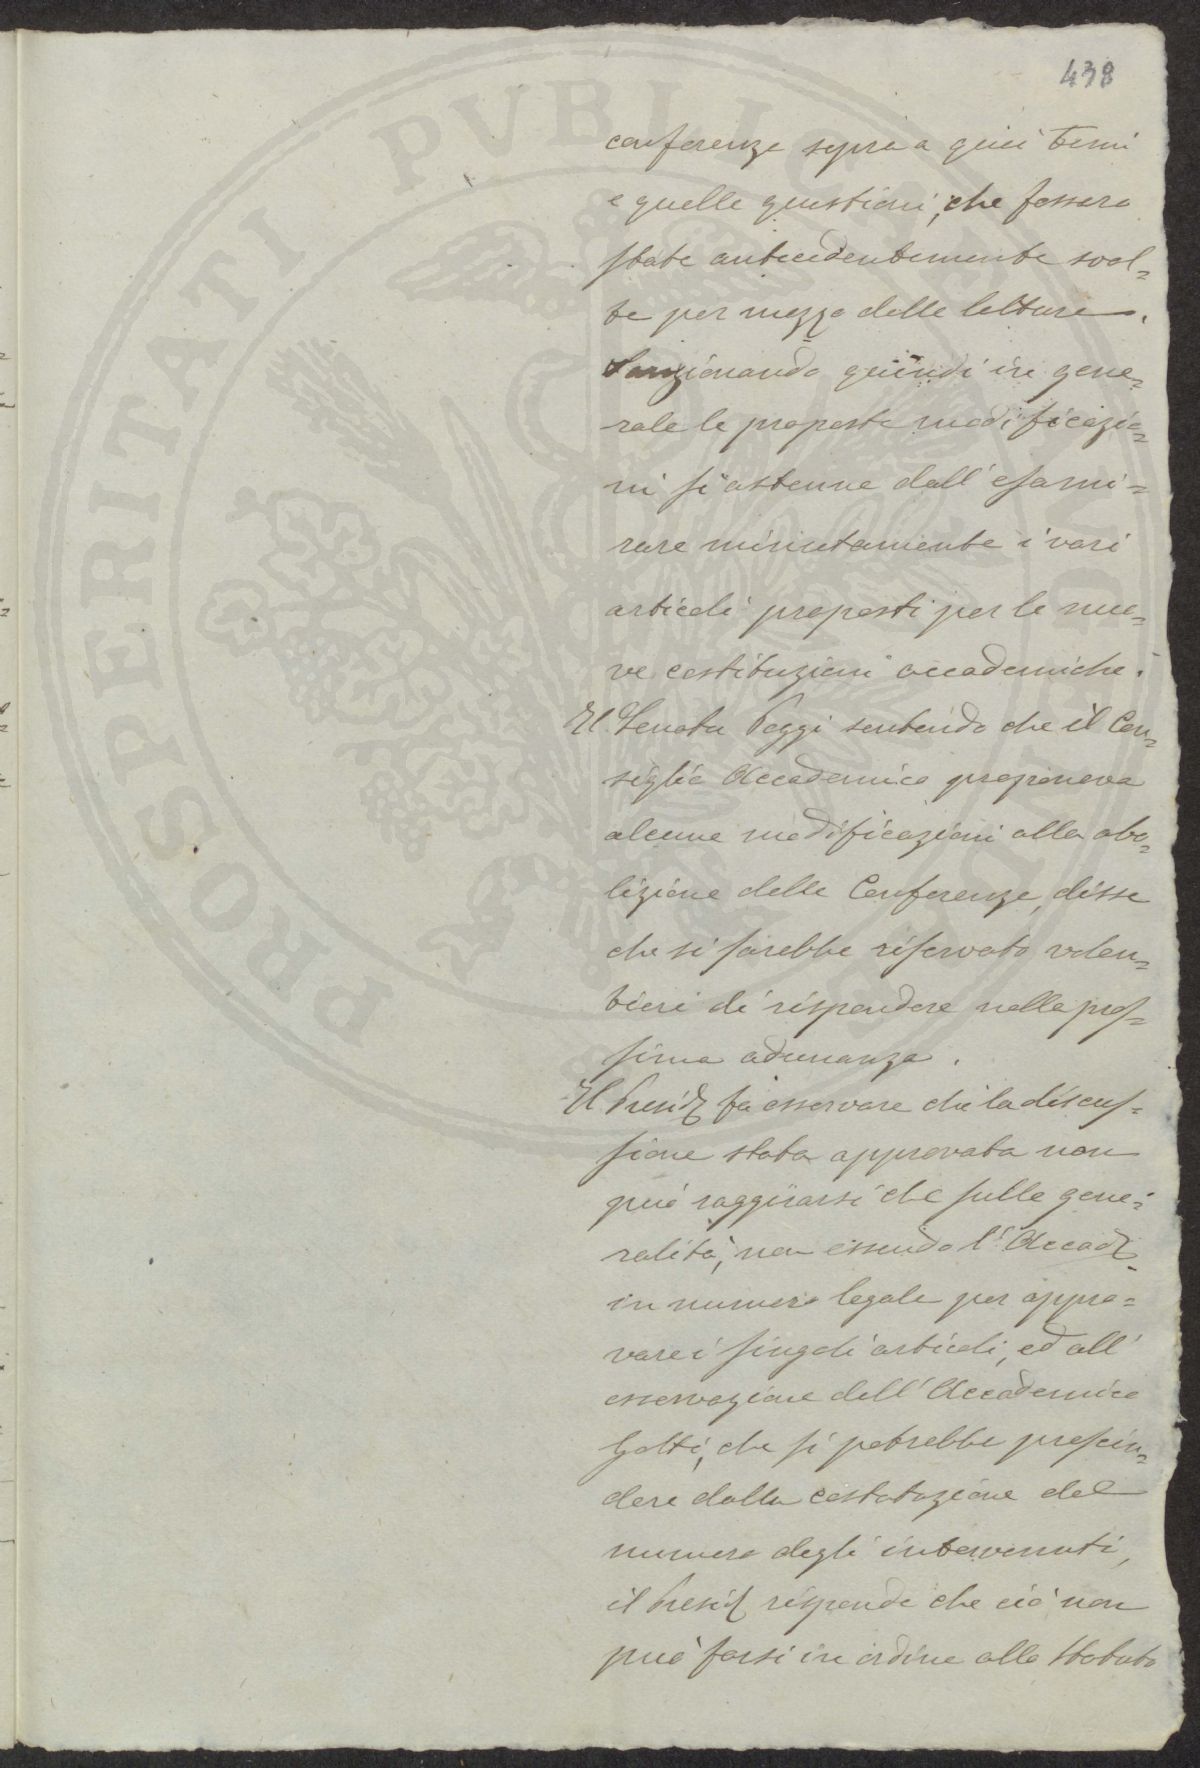 438
conferenze sopra a quei temi
e quelle questioni, che fossero
state antecedentemente svol=
te per mezzo delle letture.
Sanzionando quindi in gene=
rale le proposte modificazio=
ni si astenne dall'esami=
nare minutamente i vari
articoli proposti per le nuo=
ve costituzioni accademiche.
Il Senatore Poggi sentendo che il Con=
siglio Accademico proponeva
alcune modificazioni alla abo=
lizione delle Conferenze, disse
che si sarebbe riservato volen=
tieri di rispondere nella pros=
sima adunanza.
Il Presid. fa osservare che la discus=
sione stata approvata non
può raggirarsi che sulle gene=
ralità, non essendo l'Accad.
in numero legale per appro=
vare i singoli articoli, ed all'
osservazione dell'Accademico
Gotti, che si potrebbe prescin=
dere dalla costatazione del
numero degli intervenuti,
il Presid. risponde che ciò non
può farsi in ordine allo Statuto
PROSPERITATI PVBLICAE